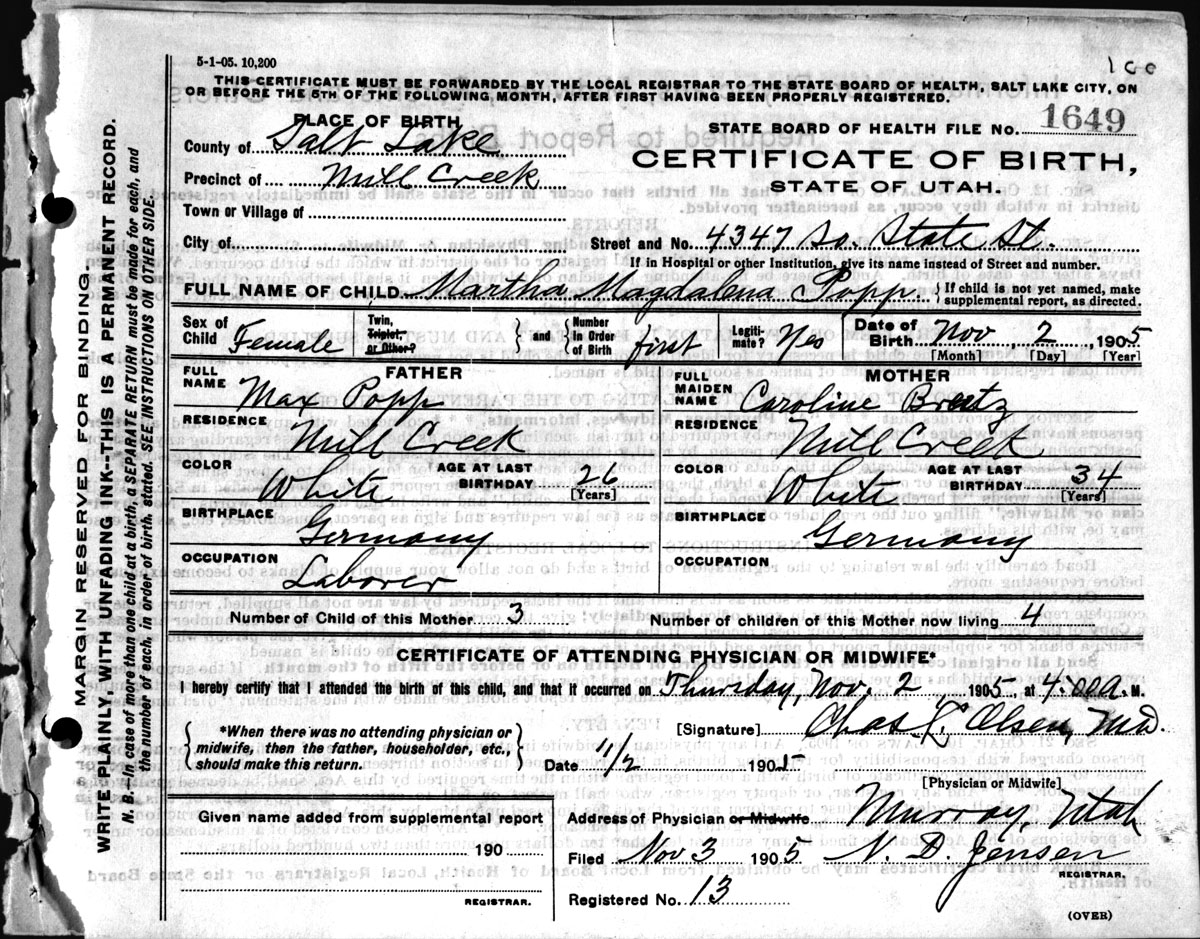 5-1-05. 10,200
100
THIS CERTIFICATE MUST BE FORWARDED BY THE LOCAL REGISTRAR TO THE STATE BOARD OF HEALTH, SALT LAKE CITY, ON
OR BEFORE THE 5TH OF THE FOLLOWING MONTH, AFTER FIRST HAVING BEEN PROPERLY REGISTERED.
PLACE OF BIRTH
STATE BOARD OF HEALTH FILE NO. 1649
County of Salt Lake
CERTIFICATE OF BIRTH,
Precinct of Mill Creek
STATE OF UTAH.
Town or Village of
City of
Street and No. 4347 So. State St.
If in Hospital or other Institution, give its name instead of Street and number.
FULL NAME OF CHILD Martha Magdalena Popp { If child is not yet named, make
supplemental report, as directed.
Sex of Child Female
Twin, Triplet, or Other? } and { Number In Order of Birth first
Legiti-mate? Yes
Date of Birth Nov, 2, 1905
[Month] [Day] [Year]
FATHER
FULL NAME Max Popp
RESIDENCE Mill Creek
COLOR White AGE AT LAST BIRTHDAY 26 [Years]
BIRTHPLACE Germany
OCCUPATION Laborer
MOTHER
FULL MAIDEN NAME Caroline Breitz
RESIDENCE Mill Creek
COLOR White AGE AT LAST BIRTHDAY 34 [Years]
BIRTHPLACE Germany
OCCUPATION
Number of Child of this Mother 3 Number of children of this Mother now living 4
CERTIFICATE OF ATTENDING PHYSICIAN OR MIDWIFE*
I hereby certify that I attended the birth of this child, and that it occurred on Thursday, Nov. 2, 1905, at 4:00 a. M.
{ *When there was no attending physician or
midwife, then the father, householder, etc.,
should make this return. }
[Signature] Chas. L. Olsen, M.D.
Date 11/2 1905
[Physician or Midwife]
Given name added from supplemental report
190
REGISTRAR.
Address of Physician or Midwife Murray, Utah
Filed Nov 3 1905 N. D. Jensen
REGISTRAR.
Registered No. 13
(OVER)
MARGIN RESERVED FOR BINDING.
WRITE PLAINLY, WITH UNFADING INK--THIS IS A PERMANENT RECORD.
N. B.—In case of more than one child at a birth, a SEPARATE RETURN must be made for each, and
the number of each, in order of birth, stated. SEE INSTRUCTIONS ON OTHER SIDE.